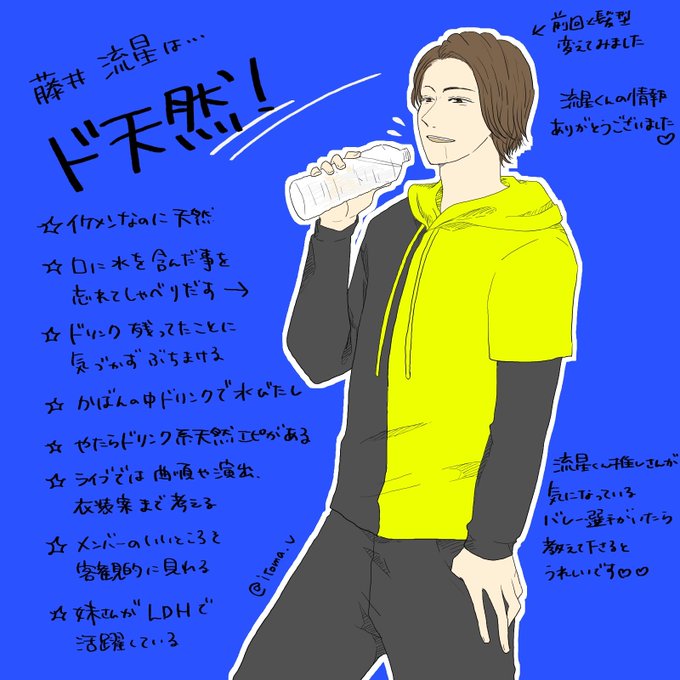 藤井 流星は…
ド天然!
☆ イケメンなのに天然
☆ 口に水を含んだ事を
忘れてしゃべりだす →
☆ ドリンク残ってたことに
気づかずぶちまける
☆ かばんの中ドリンクで水びたし
☆ やたらドリンク系天然エピがある
☆ ライブでは曲順や演出、
衣装案まで考える
☆ メンバーのいいところを
客観的に見れる
☆ 妹さんがLDHで
活躍している
← 前回と髪型
変えてみました
流星くんの情報
ありがとうございました
♡
流星くん推しさんが
気になっている
バレー選手がいたら
教えて下さると
うれしいです♡♡
@iroma.v